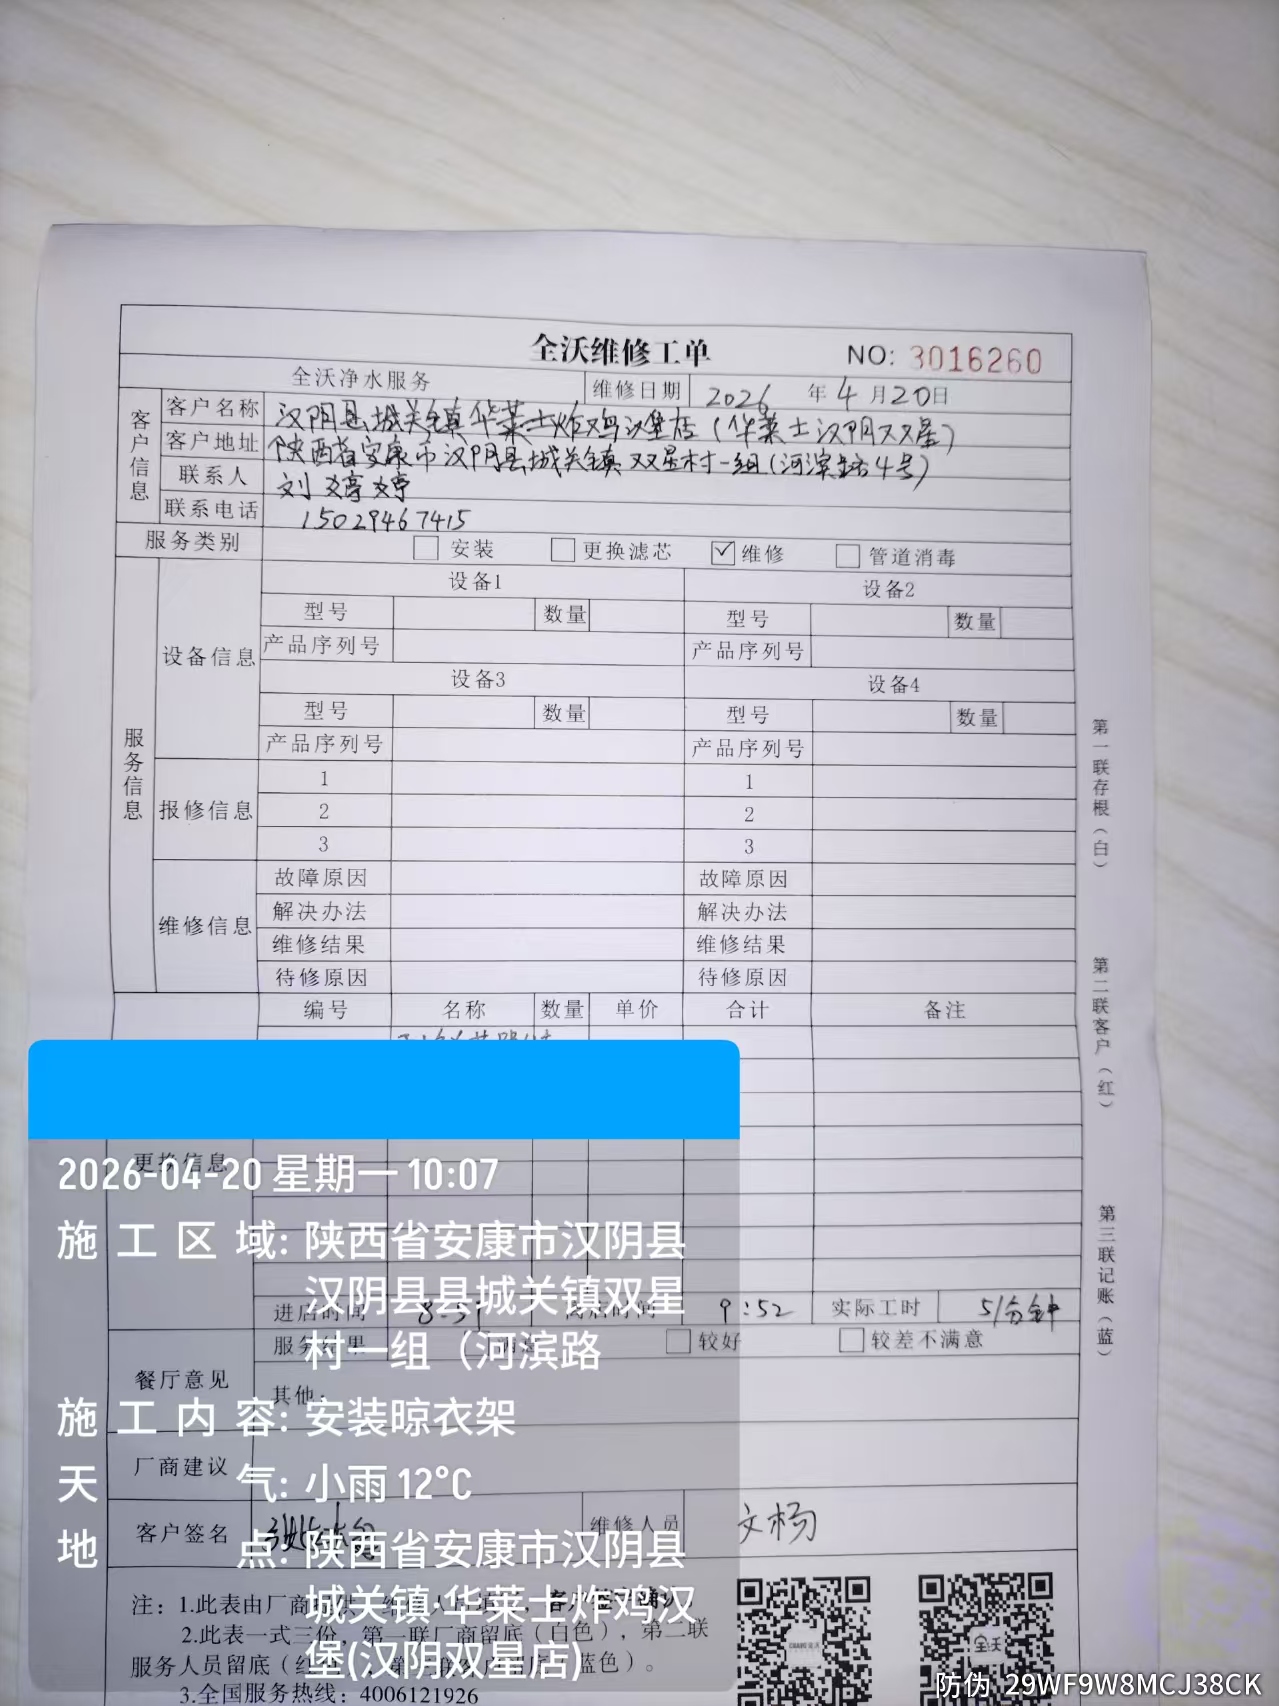 全沃维修工单 NO: 3016260
全沃净水服务 维修日期 2026 年 4 月 20 日
客户信息
客户名称 汉阴县城关镇华莱士炸鸡汉堡店(华莱士汉阴双星)
客户地址 陕西省安康市汉阴县城关镇双星村一组(河滨路4号)
联系人 刘婷婷
联系电话 15029467415
服务类别 安装 更换滤芯 ✓ 维修 管道消毒
服务信息
设备信息
设备1 设备2
型号 数量 型号 数量
产品序列号 产品序列号
设备3 设备4
型号 数量 型号 数量
产品序列号 产品序列号
报修信息
1 1
2 2
3 3
维修信息
故障原因 故障原因
解决办法 解决办法
维修结果 维修结果
待修原因 待修原因
编号 名称 数量 单价 合计 备注
更换信息
进店时间 离店时间 9:52 实际工时 51分钟
服务结果 满意 较好 较差不满意
餐厅意见
其他:
厂商建议
客户签名 维修人员 文杨
注: 1.此表由厂商
2.此表一式三份,第一联厂商留底(白色),第二联
服务人员留底(红 蓝色)。
3.全国服务热线: 4006121926
第一联存根(白)
第二联客户(红)
第三联记账(蓝)
2026-04-20 星期一 10:07
施工区域: 陕西省安康市汉阴县
汉阴县县城关镇双星
村一组（河滨路
施工内容: 安装晾衣架
天气: 小雨 12°C
地点: 陕西省安康市汉阴县
城关镇·华莱士炸鸡汉
堡(汉阴双星店)
防伪 29WF9W8MCJ38CK